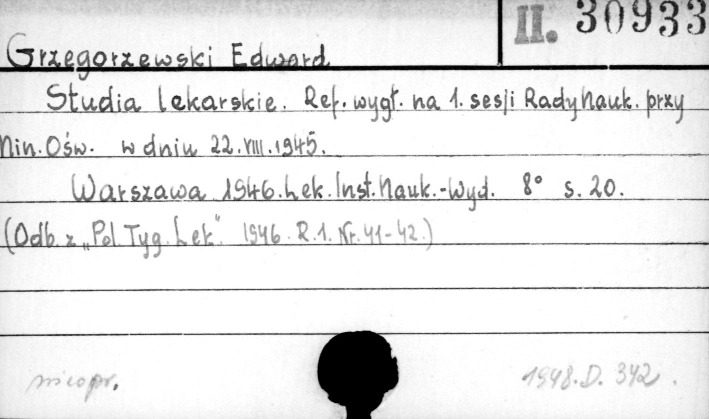 II. 30933
Grzegorzewski Edward
Studia lekarskie. Ref. wygł. na 1. sesji Rady Nauk. przy
Min. Ośw. w dniu 22.VIII.1945.
Warszawa 1946. Lek. Inst. Nauk.-Wyd. 8° s. 20.
(Odb. z „Pol. Tyg. Lek". 1946. R.1. Nr. 41-42.)
nieopr. 1948.D. 342.